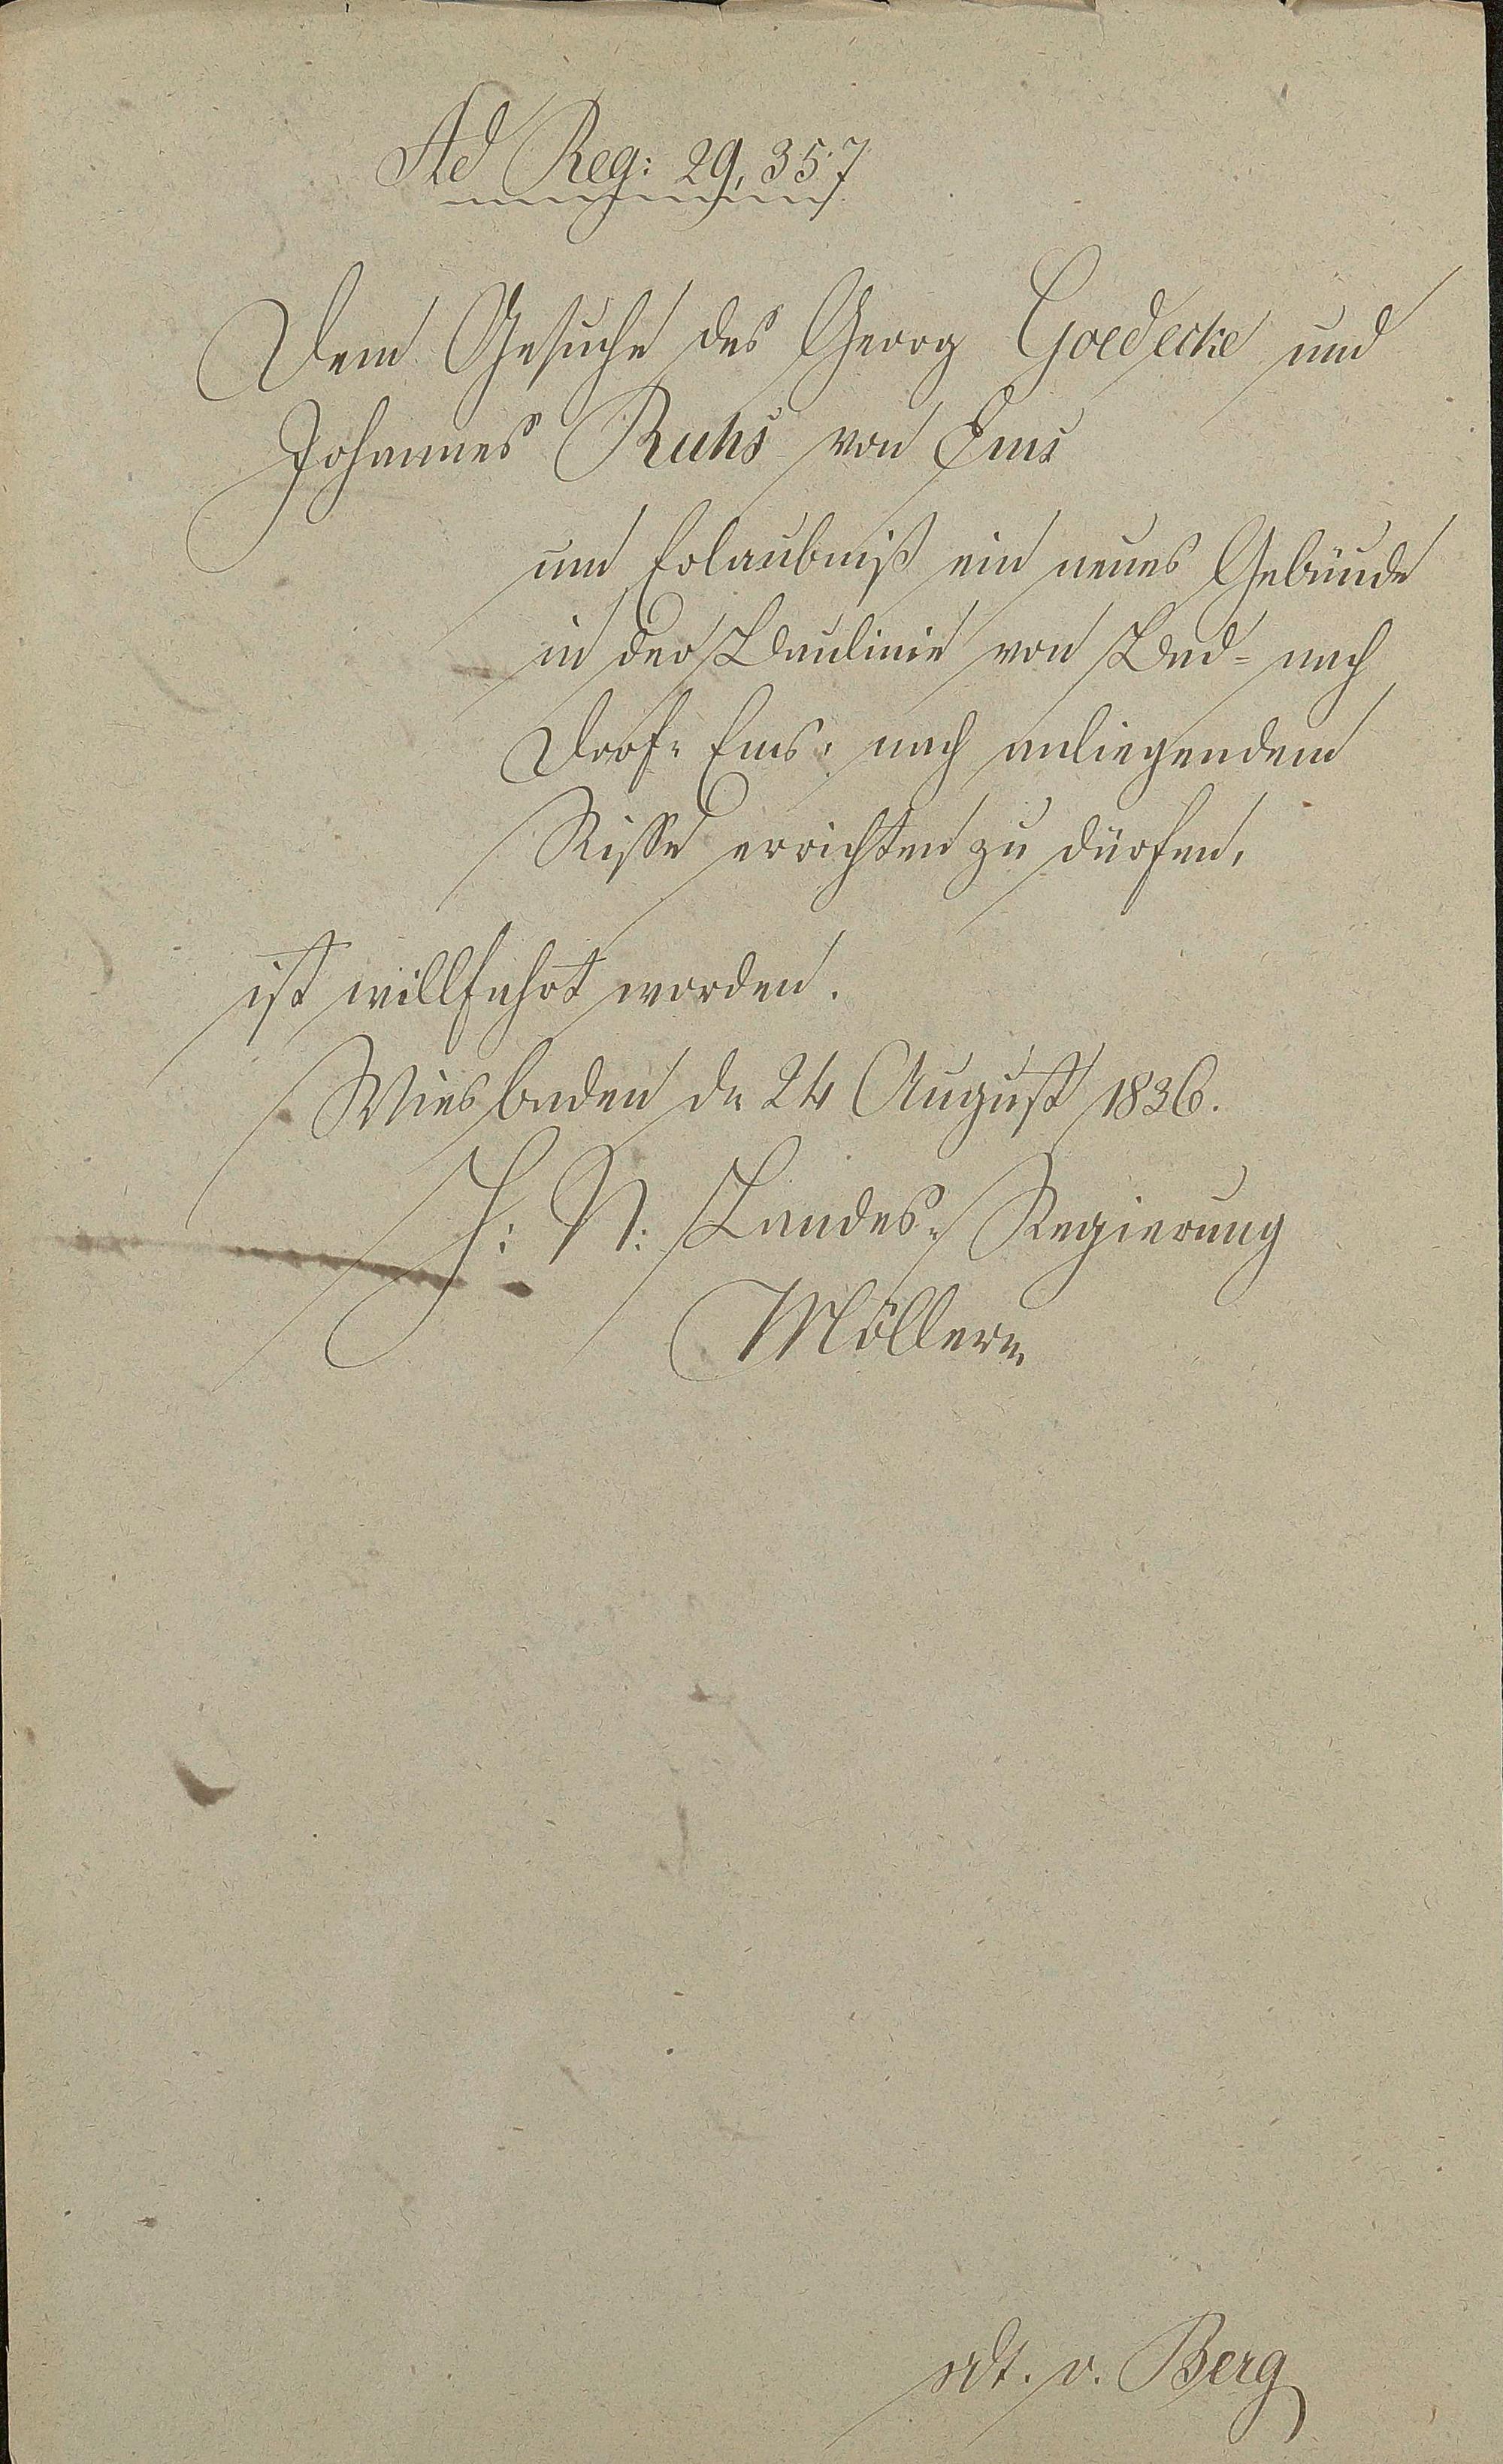 Ad Reg: 29,357
Dem Gesuche des Georg Goedecke und
Johannes Ruhs von Ems
um Erlaubniß ein neues Gebäude
in der Baulinie von Bad- nach
Dorf-Ems, nach anliegendem
Risse errichten zu dürfen,
ist willfahrt worden.
Wiesbaden de 24 August 1836.
H: N: Landes-Regierung
Möller
vdt. v. Berg